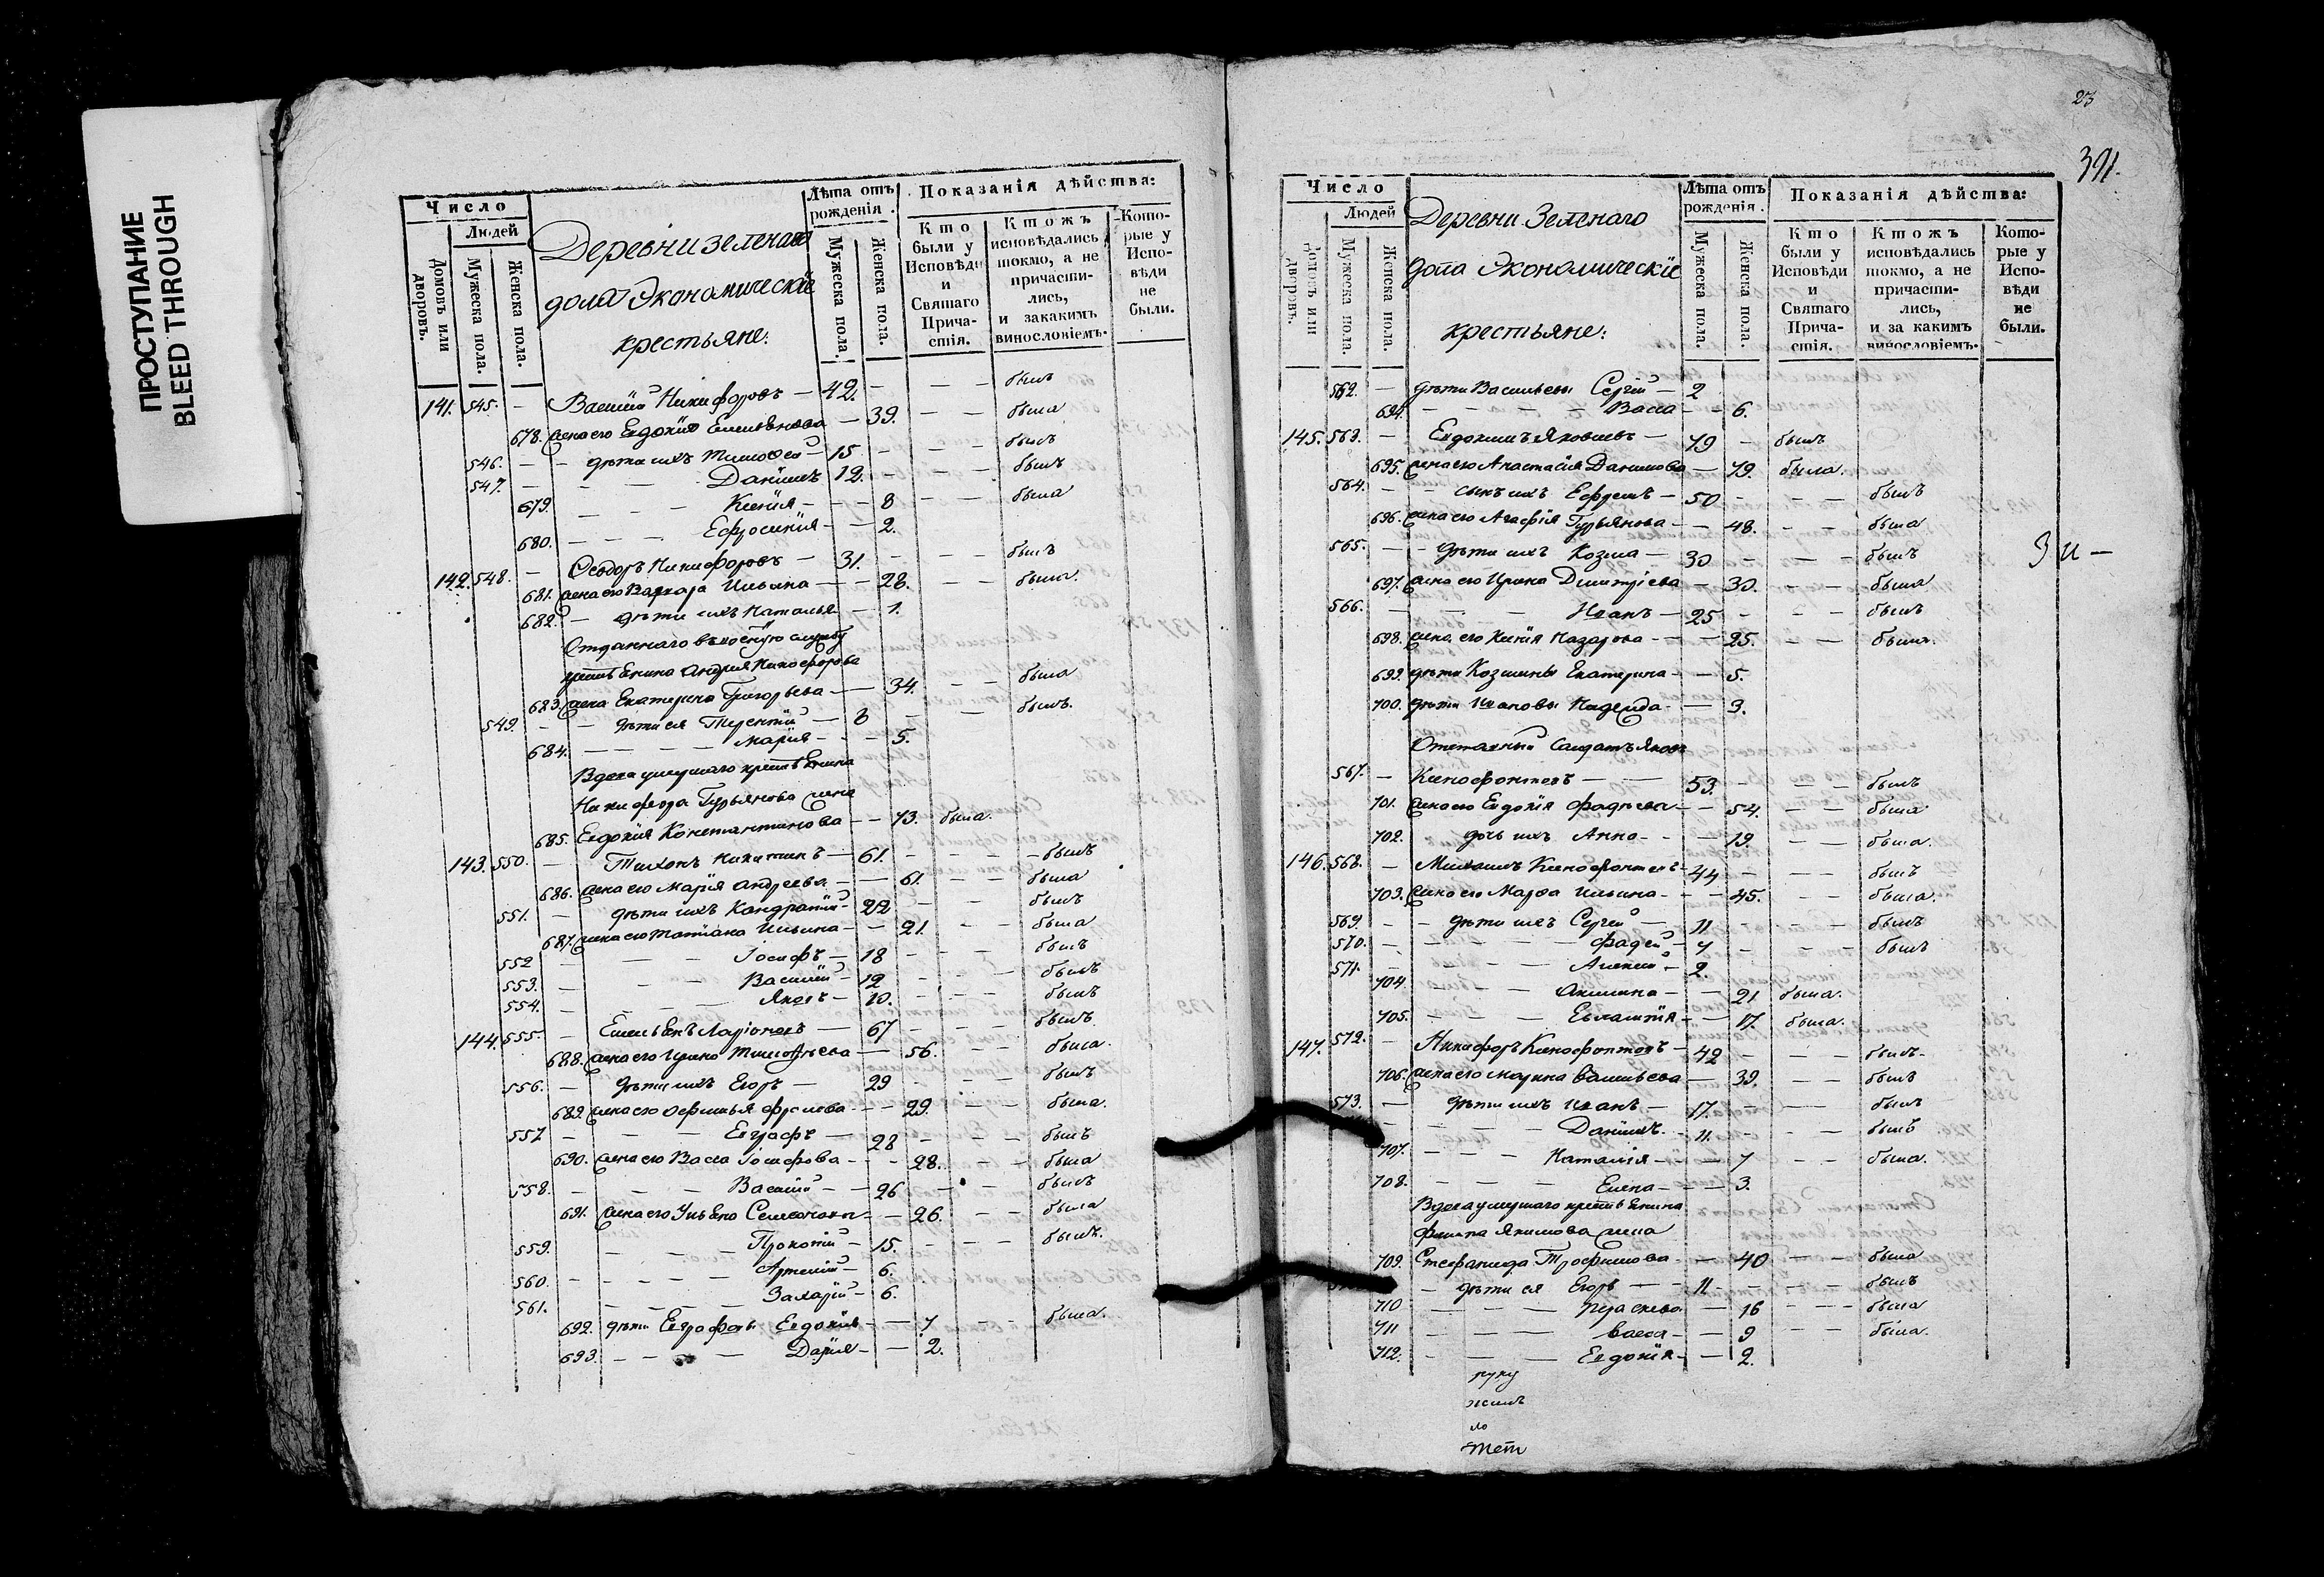 ПРОСТУПАНИЕ
BLEED THROUGH
Число
Людей
Домовъ или дворовъ.
Мужеска пола.
Женска пола.
Деревни зеленаго
дола Экономическiе
крестьяне:
Лѣта отъ рожденiя.
Мужеска пола.
Женска пола.
Показанiя дѣйства:
Кто были у Исповѣди и Святаго Прича-стiя.
Ктожъ исповѣдались токмо, а не причасти-лись, и закакимъ винословiемъ.
Кото-рые у Испо-вѣди не были.
141. 545. — Василiй Никифоровъ — 42. — — — былъ
678. жена его Евдокiя Емельянова — 39. — — была
546. — — дѣти ихъ Тимофей — 15 — — — былъ
547. — — — Данiилъ 12. — — — былъ
679. — — — Ксенiя — — 8 — — была
680. — — — Ефросинiя — — 2.
142. 548. — Феодоръ Никифоровъ — 31. — — — былъ
681. жена его Варвара Ильина — — 28. — — была.
682. — дѣти ихъ Наталья — 1.
Отданнаго въ военную службу
крестьянина Андрея Никифорова
683. жена Екатерина Григорьева — 34. — — была
549. — — дѣти ея Терентiй — 8 — — былъ.
684. — — — — Марiя — — 5.
Вдова умершаго крестьянина
Никифора Гурьянова жена
685. Евдокiя Константинова — — 73. была.
143. 550. — Тихонъ Никитинъ — 61. — — — — былъ
686. жена его Марiя Андреева — — 61. — — была
551. — дѣти ихъ Кондратiй — 22 — — былъ
687. жена его Татiана Ильина — — 21. — — была
552 — — — Iосифъ — 18 — — — былъ
553. — — — Василiй — 12 — — — былъ
554. — — — Яковъ — 10. — — — былъ
144. 555. — Емельянъ Ларiоновъ — 67 — — — былъ
688. жена его Ирина Тимофѣева — 56. — — была.
556. — дѣти ихъ Егоръ — 29 — — — былъ
689. жена его Офимья Фролова — — 29. — — была.
557 — — — Евграфъ — 28 — — — былъ
690. жена его Васса Iосифова — — 28. — — была
558. — — — Василiй — — 26 — — былъ
691. жена его Ульяна — — 26. — — была
559. — — — Прокопiй — 15. — — — былъ.
560. — — — — Артемiй — 6.
561. — — — — Захарiй — 6.
692. дѣти Евграфовы Евдокiя — — 7 — — была.
693. — — — — Дарья — — 2.
23
391.
Число
Людей
Домовъ или дворовъ.
Мужеска пола.
Женска пола.
Деревни Зеленаго
дола Экономическiе
крестьяне:
Лѣта отъ рожденiя.
Мужеска пола.
Женска пола.
Показанiя дѣйства:
Кто были у Исповѣди и Святаго Прича-стiя.
Ктожъ исповѣдались токмо, а не причасти-лись, и за какимъ винословiемъ.
Кото-рые у Испо-вѣди не были.
562. — дѣти Васильевы Сергiй — 2
694. — — — — Васса — — 6.
145. 563. — Евдокимъ Яковлевъ — 79 — былъ
695. жена его Анастасiя Данилова — 79. была.
564. — — сынъ ихъ Ефремъ — 50 — — — былъ
696. жена его Агафiя Гурьянова — — 48. — — была
565. — — дѣти ихъ Козма — 30 — — — былъ
697. жена его Ирина Димитрiева — 30. — — была
566. — — — Иванъ — 25 — — — былъ
698. жена его Ксенiя Назарова — — 25. — — была.
699. дѣти Козмины Екатерина — — 5.
700. дѣти Ивановы Надежда — — 3.
Отставный Солдатъ Яковъ
567. — Ксенофонтовъ — — 53. — — — былъ
701. жена его Евдокiя Фадѣева — — 54. — — была
702. дочь ихъ Анна — — 19. — — была.
146. 568. — Михаилъ Ксенофонтовъ — 44 — — — былъ
703. жена его Марфа Ильина — — 45. — — была.
569. — — дѣти ихъ Сергiй — 11 — — — былъ
570. — — — — — Фадей — 7 — — — былъ
571. — — — — Алексiй — 2.
704. — — — Акилина — — 21 была.
705. — — — Евлампiя — — 17. была.
147. 572. — Никифоръ Ксенофонтовъ — 42 — — — былъ
706. жена его Марина Васильева — 39. — — былъ
573. — дѣти ихъ Иванъ — 17. — — былъ
— — — — Данiилъ — 11. — — — былъ
707. — — — Наталiя — — 7 — — была.
708. — — — — Елена — — — 3.
Вдова умершаго крестьянина
Филипа Якимова жена
709. Стефанида Трофимова — — 40 — — была
— дѣти ея Егоръ — — 11 — — — былъ
710 — — — Праскева — 16 — — — была
711 — — — Васса — — 9 — — была.
712. — — — Евдокiя — — 2.
руку
жилъ
ло